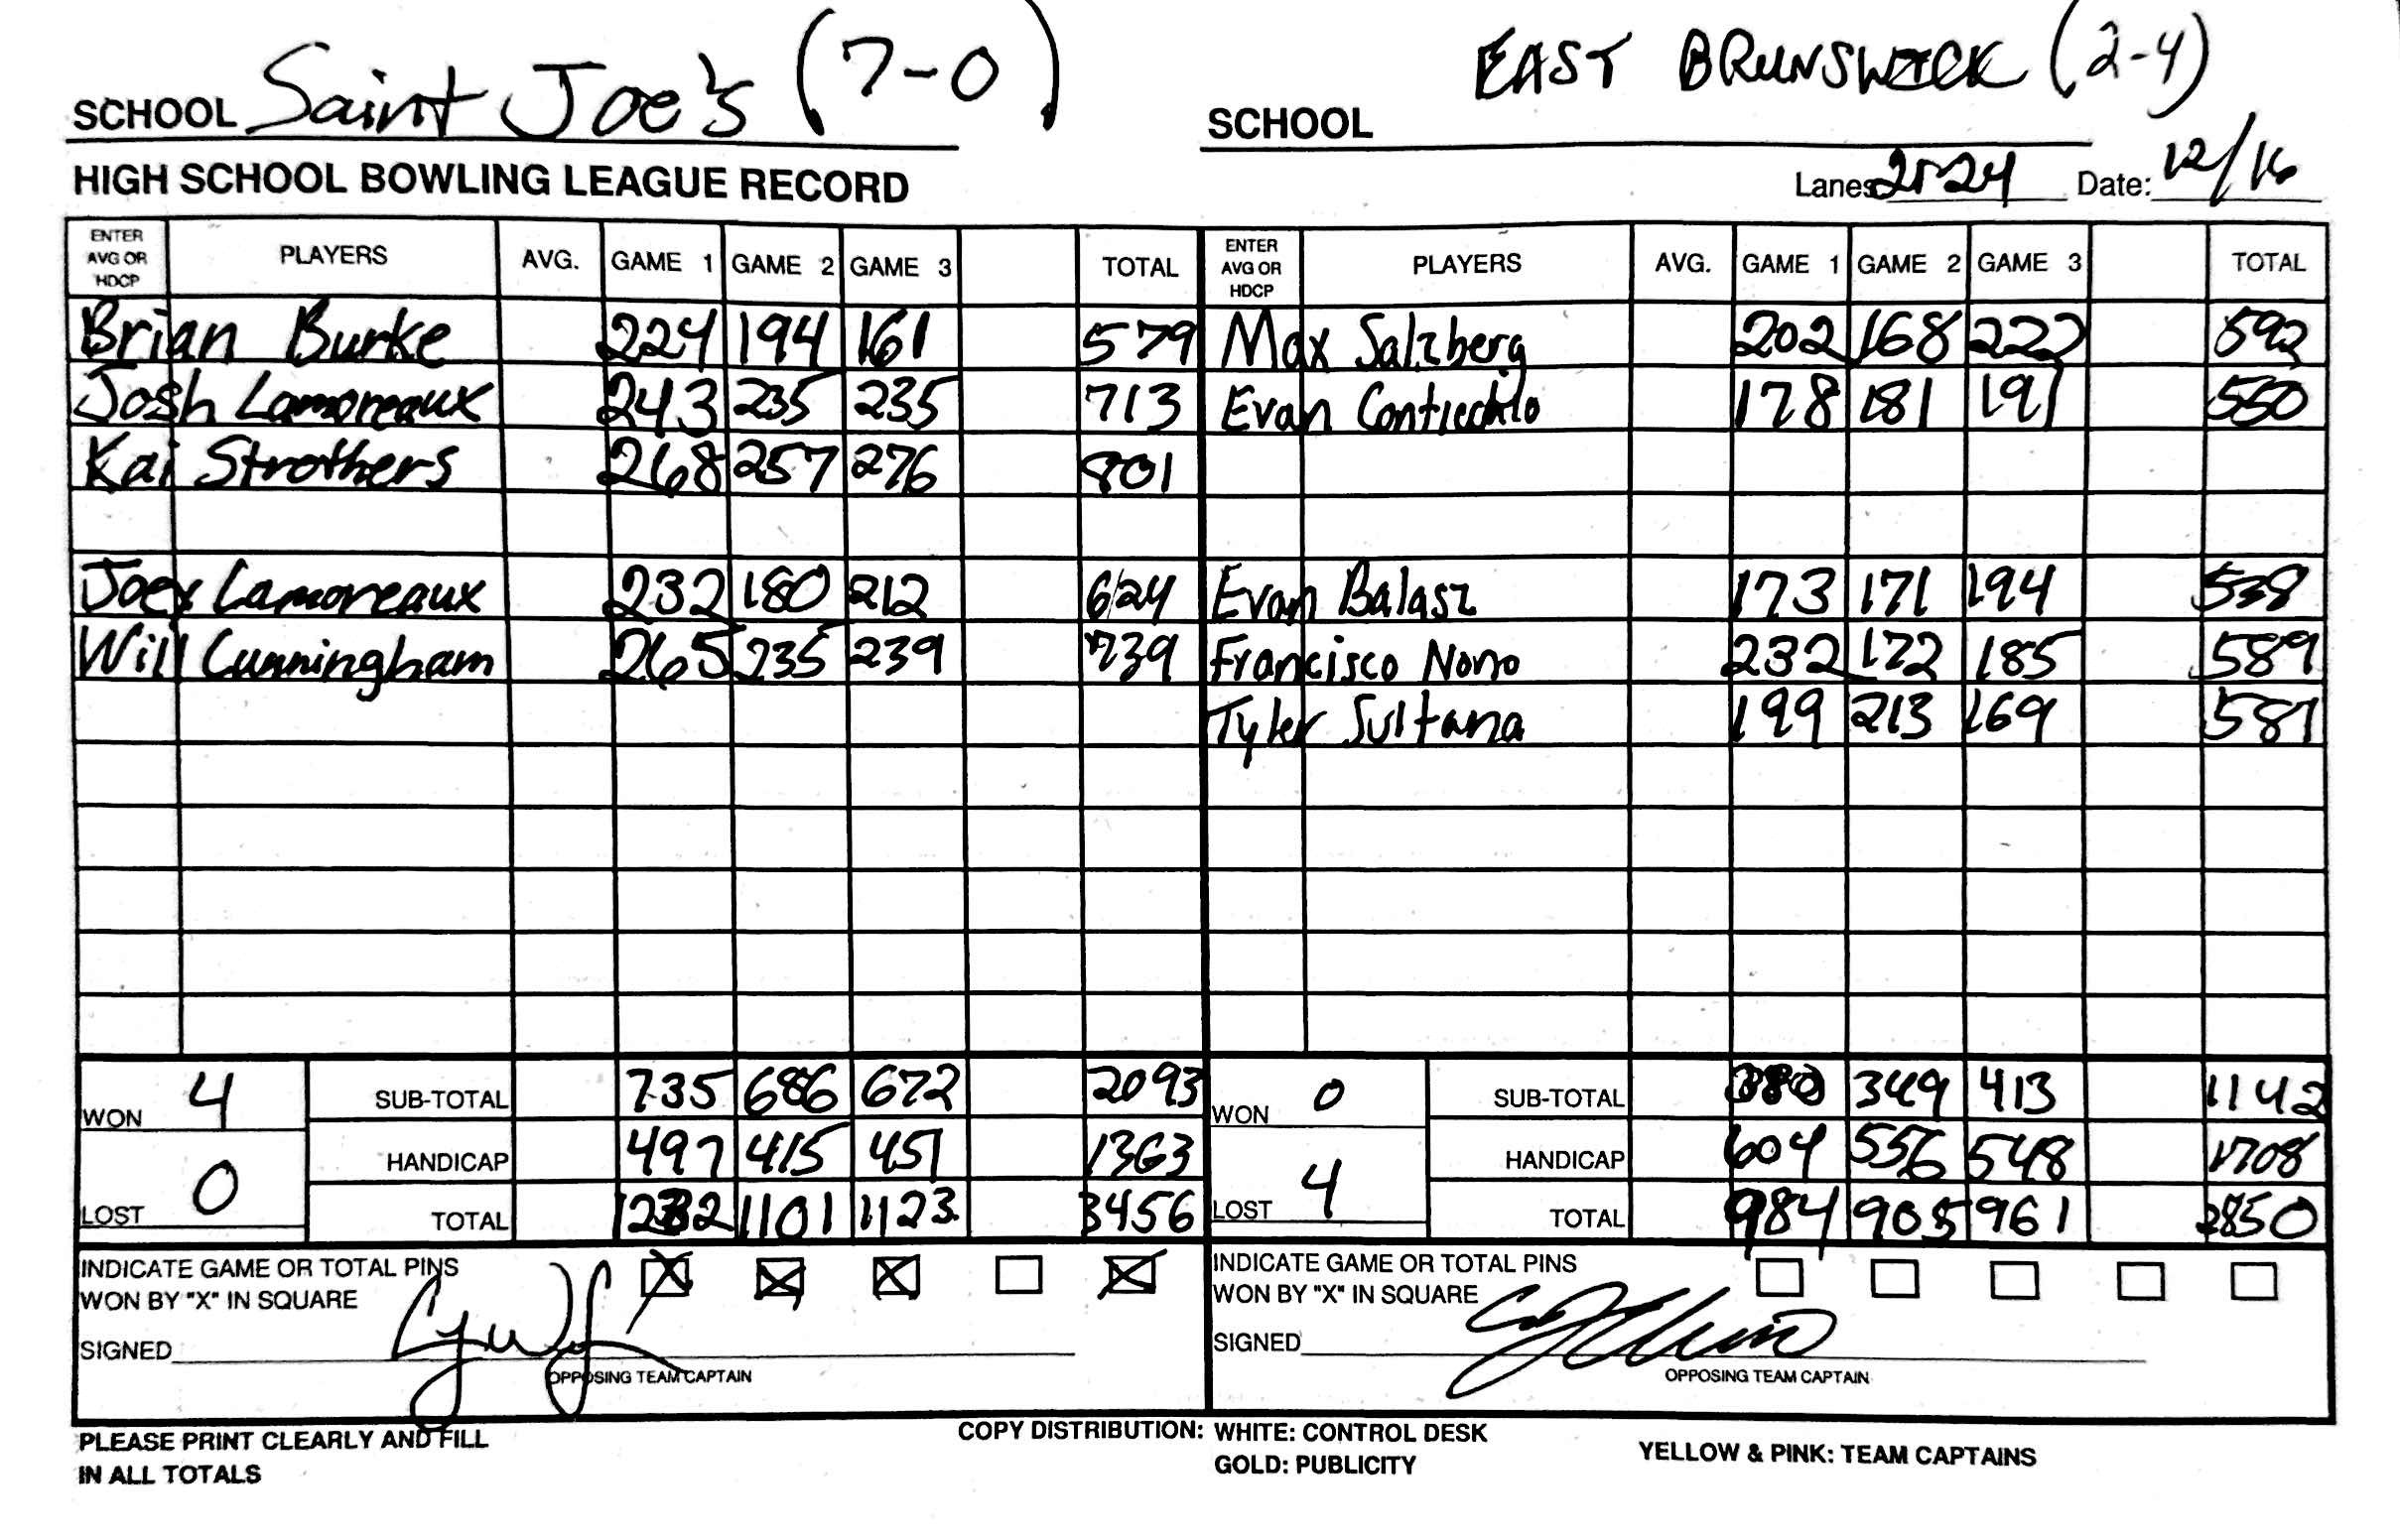 SCHOOL Saint Joe's (7-0)
SCHOOL EAST BRUNSWICK (2-4)
HIGH SCHOOL BOWLING LEAGUE RECORD
Lanes 21-24 Date: 12/16
ENTER AVG OR HDCP PLAYERS AVG. GAME 1 GAME 2 GAME 3 TOTAL ENTER AVG OR HDCP PLAYERS AVG. GAME 1 GAME 2 GAME 3 TOTAL
Brian Burke 224 194 161 579 Max Salzberg 202 168 222 592
Josh Lamoreaux 243 235 235 713 Evan 178 181 191 550
Kai Strothers 268 257 276 801
Joey Lamoreaux 232 180 212 624 Evan Balasz 173 171 194 538
Will Cunningham 265 235 239 739 Francisco Nono 232 172 185 589
Tyler Sultana 199 213 169 581
WON 4 SUB-TOTAL 735 686 672 2093 WON 0 SUB-TOTAL 380 349 413 1142
HANDICAP 497 415 451 1363 HANDICAP 604 556 548 1708
LOST 0 TOTAL 1232 1101 1123 3456 LOST 4 TOTAL 984 905 961 2850
INDICATE GAME OR TOTAL PINS
WON BY "X" IN SQUARE
INDICATE GAME OR TOTAL PINS
WON BY "X" IN SQUARE
SIGNED
OPPOSING TEAM CAPTAIN
SIGNED
OPPOSING TEAM CAPTAIN
PLEASE PRINT CLEARLY AND FILL
IN ALL TOTALS
COPY DISTRIBUTION: WHITE: CONTROL DESK
GOLD: PUBLICITY
YELLOW & PINK: TEAM CAPTAINS